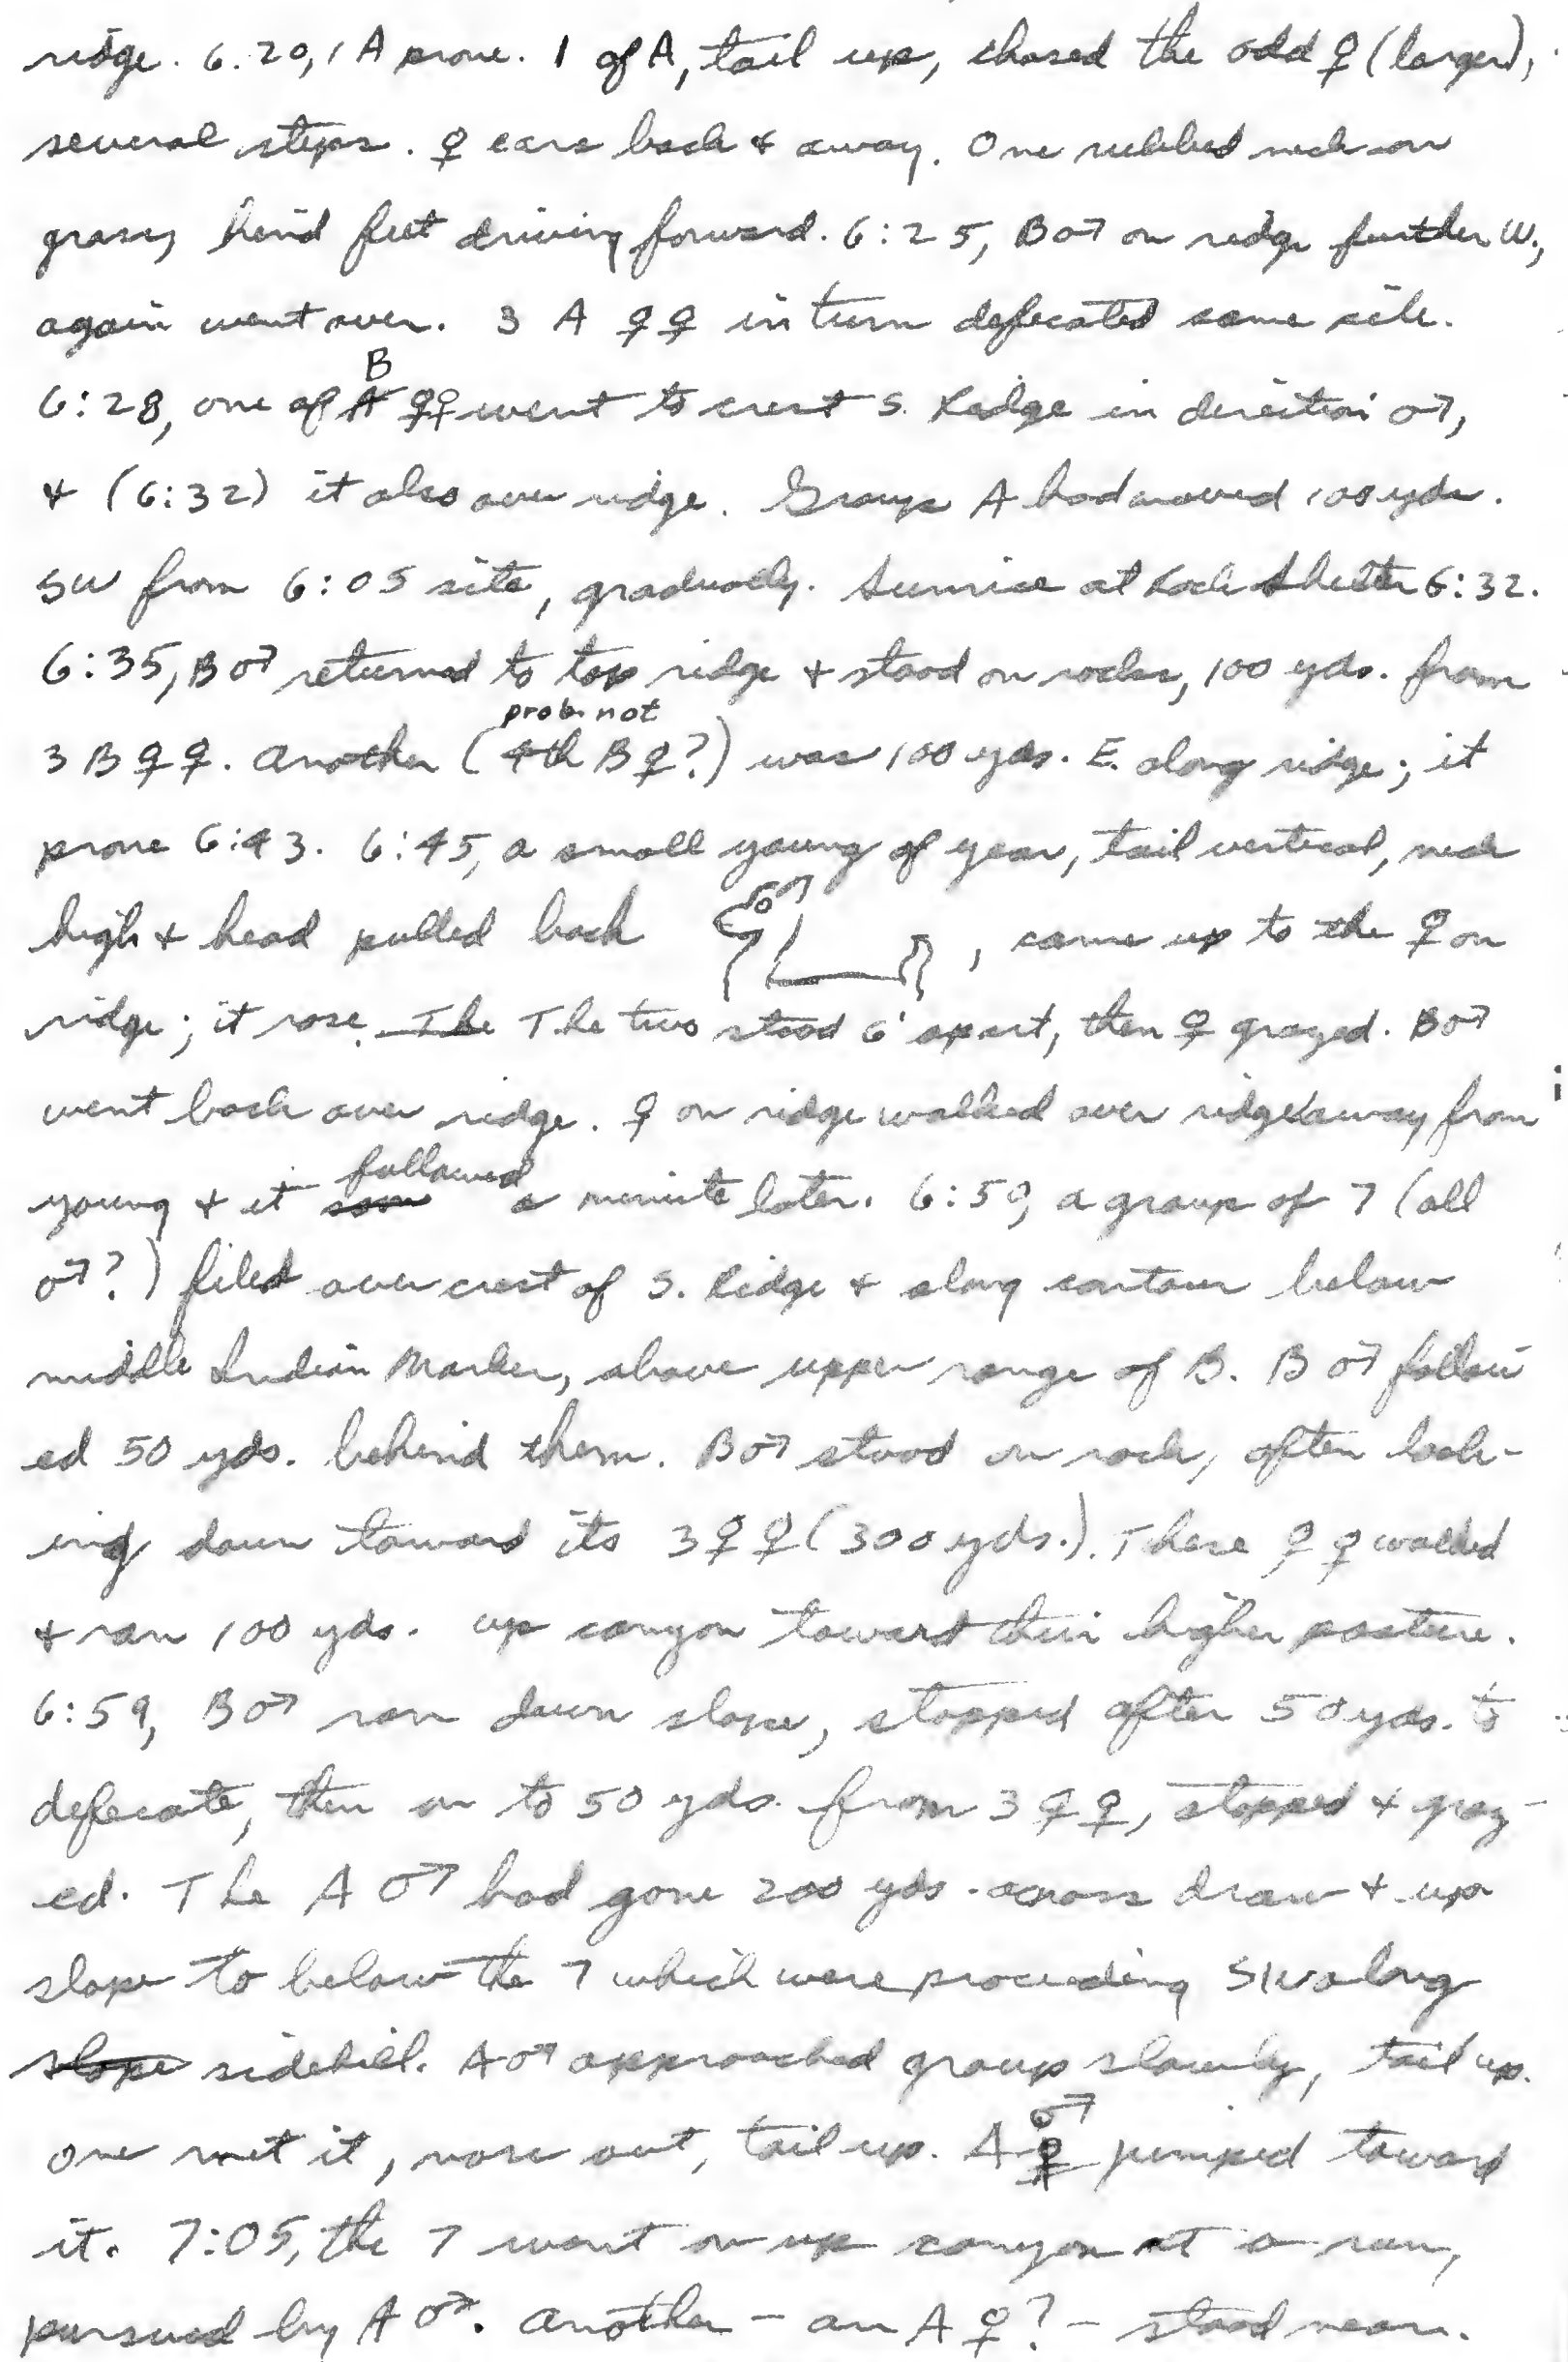 ridge. 6:20, 1 A prone. 1 of A, tail up, chased the odd ♀ (larger),
several steps. ♀ ears back & away. One rubbed neck on
grass, hind feet driving forward. 6:25, B♂ on ridge further W.,
again went over. 3 A ♀♀ in turn defecated same site.
B
6:28, one of A ♀♀ went to crest S. Ridge in direction ♂,
& (6:32) it also over ridge. Group A had moved 100 yds.
SW from 6:05 site, gradually. Sunrise at Rock Shelter 6:32.
6:35, B♂ returned to top ridge & stood on rocks, 100 yds. from
prob. not
3 B ♀♀. Another (4th B♀?) was 100 yds. E. along ridge; it
prone 6:43. 6:45, a small young of year, tail vertical, neck
high & head pulled back , came up to the ♀ on
ridge; it rose. The The two stood 6' apart, then ♀ grazed. B♂
went back over ridge. ♀ on ridge walked over ridge away from
followed
young & it soon a minute later. 6:50, a group of 7 (all
♂?) filed over crest of S. Ridge & along contour below
middle Indian Marker, above upper range of B. B♂ follow
ed 50 yds. behind them. B♂ stood on rock, often look-
ing down toward its 3♀♀ (300 yds.). These ♀♀ walked
& ran 100 yds. up canyon toward their higher pasture.
6:59, B♂ ran down slope, stopped after 50 yds. to
defecate, then on to 50 yds. from 3♀♀, stopped & graz-
ed. The A♂ had gone 200 yds. across draw & up
slope to below the 7 which were proceeding SW along
slope sidehill. A♂ approached group slowly, tail up.
♂
One met it, nose out, tail up. A♀ jumped toward
it. 7:05, the 7 went on up canyon at a run,
pursued by A♂. Another – an A♀? – stood near.